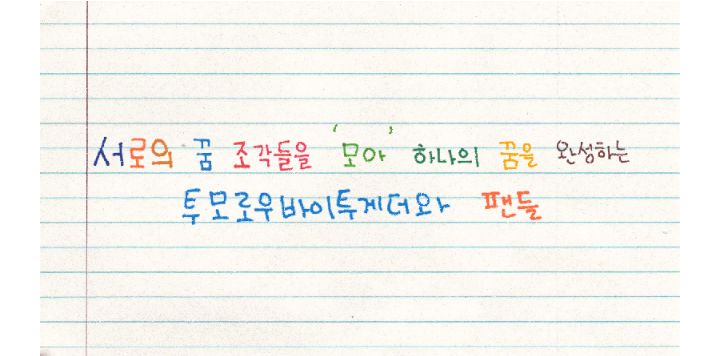 서로의 꿈 조각들을 '모아' 하나의 꿈을 완성하는
투모로우바이투게더와 팬들